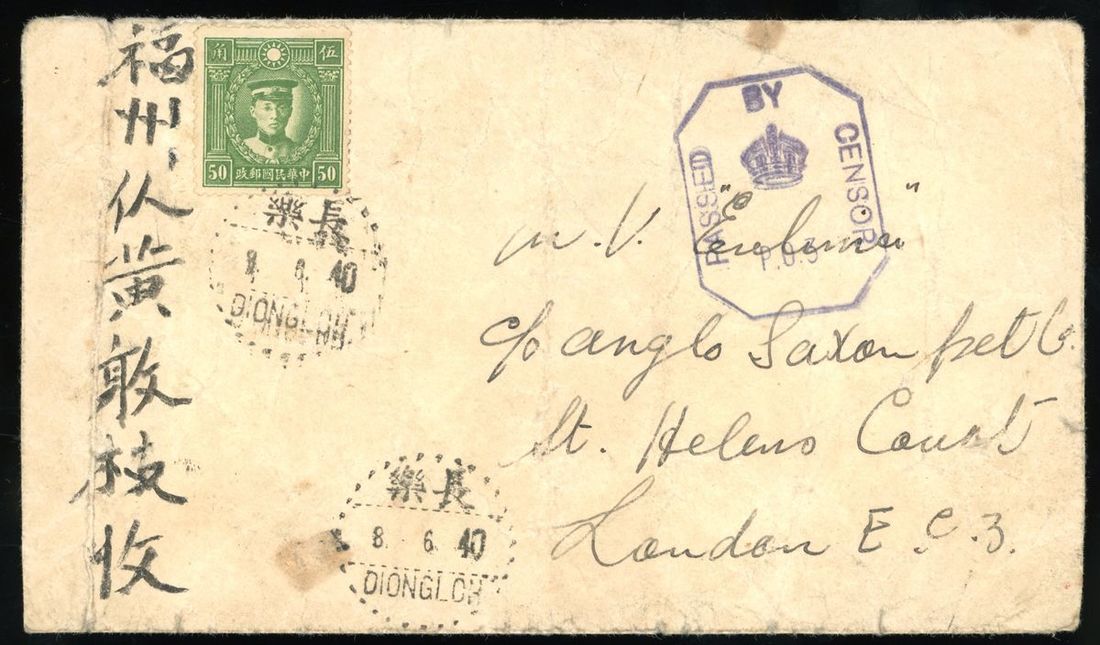 福州仏黄敢枝收
角 伍
50 政郵國民華中 50
樂長
8. 6. 40
DIONGLOH
PASSED BY CENSOR
m. V. "
c/o Anglo Saxon Pet Co.
St. Helens Court
London E.C.3.
樂長
8. 6. 40
DIONGLOH